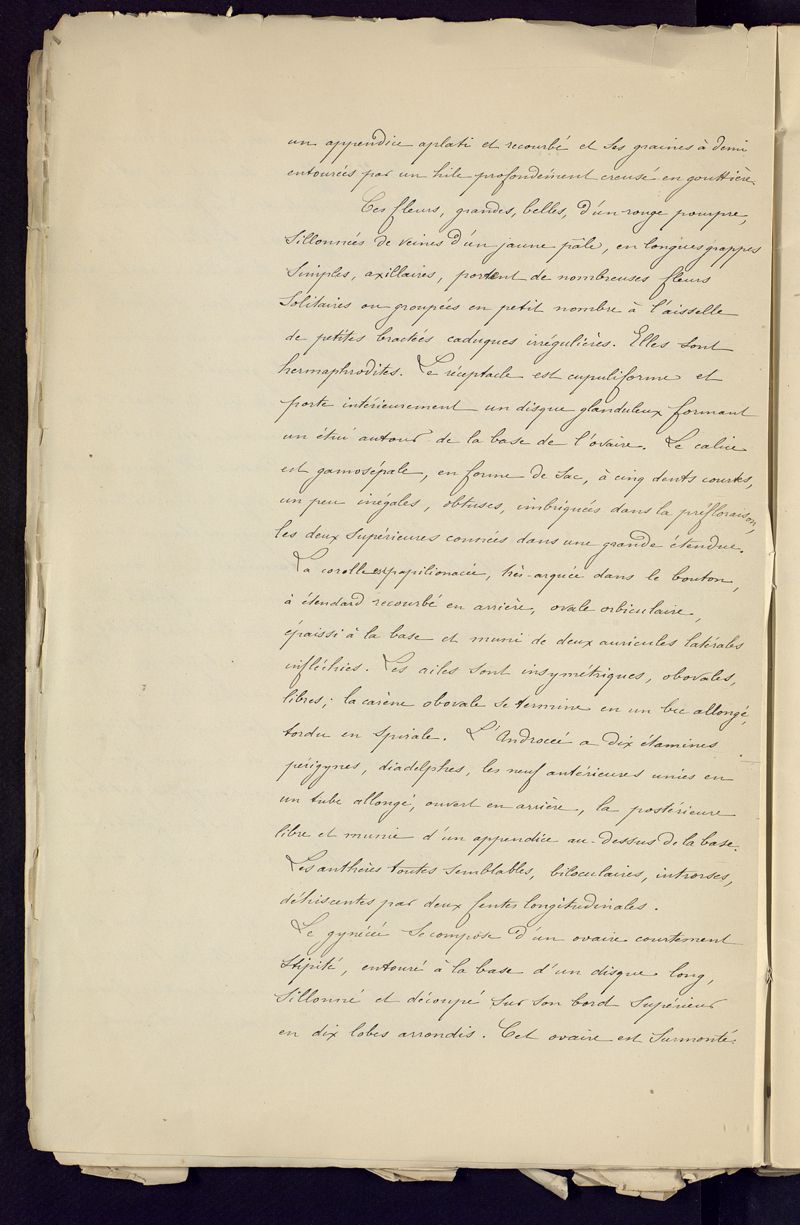 un appendice aplati et recourbé et ses graines à demi
entourées par un hile profondément creusé en gouttière.
Ces fleurs, grandes, belles, d'un rouge pourpre,
sillonnées de veines d'un jaune pâle, en longues grappes
simples, axillaires, portent de nombreuses fleurs
solitaires ou groupées en petit nombre à l'aisselle
de petites bractées caduques irrégulières. Elles sont
hermaphrodites. Le réceptacle est cupuliforme et
porte intérieurement un disque glanduleux formant
un étui autour de la base de l'ovaire. Le calice
est gamosépale, en forme de sac, à cinq dents courtes,
un peu inégales, obtuses, imbriquées dans la préfloraison,
les deux supérieures connées dans une grande étendue.
La corolle est papilionacée, très-arquée dans le bouton,
à étendard recourbé en arrière, ovale orbiculaire,
épaissi à la base et muni de deux auricules latérales
infléchies. Les ailes sont insymétriques, obovales,
libres; la carène obovale se termine en un bec allongé,
tordu en spirale. L'Androcée a dix étamines
périgynes, diadelphes, les neuf antérieures unies en
un tube allongé, ouvert en arrière, la postérieure
libre et munie d'un appendice au-dessus de la base.
Les anthères toutes semblables, biloculaires, introrses,
déhiscentes par deux fentes longitudinales.
Le gynécée se compose d'un ovaire courtement
stipité, entouré à la base d'un disque long,
sillonné et découpé sur son bord supérieur
en dix lobes arrondis. Cet ovaire est surmonté